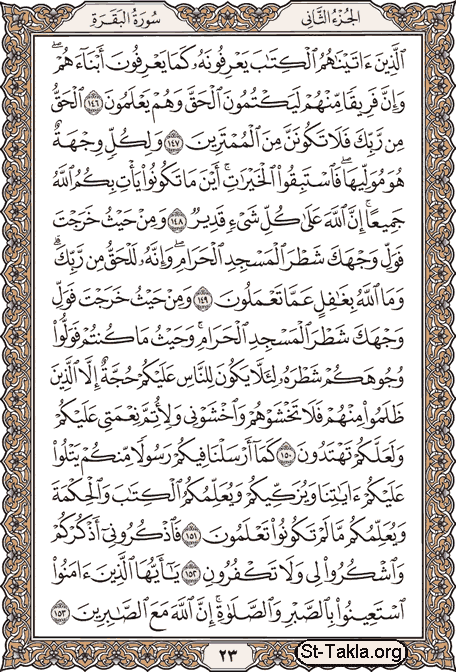 الجزء الثانى
سورة البقرة
ٱلَّذِينَ ءَاتَيْنَٰهُمُ ٱلْكِتَٰبَ يَعْرِفُونَهُۥ كَمَا يَعْرِفُونَ أَبْنَآءَهُمْ ۖ
وَإِنَّ فَرِيقًا مِّنْهُمْ لَيَكْتُمُونَ ٱلْحَقَّ وَهُمْ يَعْلَمُونَ ١٤٦ ٱلْحَقُّ
مِن رَّبِّكَ فَلَا تَكُونَنَّ مِنَ ٱلْمُمْتَرِينَ ١٤٧ وَلِكُلٍّ وِجْهَةٌ
هُوَ مُوَلِّيهَا ۖ فَٱسْتَبِقُوا۟ ٱلْخَيْرَٰتِ ۚ أَيْنَ مَا تَكُونُوا۟ يَأْتِ بِكُمُ ٱللَّهُ
جَمِيعًا ۚ إِنَّ ٱللَّهَ عَلَىٰ كُلِّ شَىْءٍ قَدِيرٌ ١٤٨ وَمِنْ حَيْثُ خَرَجْتَ
فَوَلِّ وَجْهَكَ شَطْرَ ٱلْمَسْجِدِ ٱلْحَرَامِ ۖ وَإِنَّهُۥ لَلْحَقُّ مِن رَّبِّكَ ۗ
وَمَا ٱللَّهُ بِغَٰفِلٍ عَمَّا تَعْمَلُونَ ١٤٩ وَمِنْ حَيْثُ خَرَجْتَ فَوَلِّ
وَجْهَكَ شَطْرَ ٱلْمَسْجِدِ ٱلْحَرَامِ ۚ وَحَيْثُ مَا كُنتُمْ فَوَلُّوا۟
وُجُوهَكُمْ شَطْرَهُۥ لِئَلَّا يَكُونَ لِلنَّاسِ عَلَيْكُمْ حُجَّةٌ إِلَّا ٱلَّذِينَ
ظَلَمُوا۟ مِنْهُمْ فَلَا تَخْشَوْهُمْ وَٱخْشَوْنِى وَلِأُتِمَّ نِعْمَتِى عَلَيْكُمْ
وَلَعَلَّكُمْ تَهْتَدُونَ ١٥٠ كَمَآ أَرْسَلْنَا فِيكُمْ رَسُولًا مِّنكُمْ يَتْلُوا۟
عَلَيْكُمْ ءَايَٰتِنَا وَيُزَكِّيكُمْ وَيُعَلِّمُكُمُ ٱلْكِتَٰبَ وَٱلْحِكْمَةَ
وَيُعَلِّمُكُم مَّا لَمْ تَكُونُوا۟ تَعْلَمُونَ ١٥١ فَٱذْكُرُونِىٓ أَذْكُرْكُمْ
وَٱشْكُرُوا۟ لِى وَلَا تَكْفُرُونِ ١٥٢ يَٰٓأَيُّهَا ٱلَّذِينَ ءَامَنُوا۟
ٱسْتَعِينُوا۟ بِٱلصَّبْرِ وَٱلصَّلَوٰةِ ۚ إِنَّ ٱللَّهَ مَعَ ٱلصَّٰبِرِينَ ١٥٣
٢٣
St-Takla.org